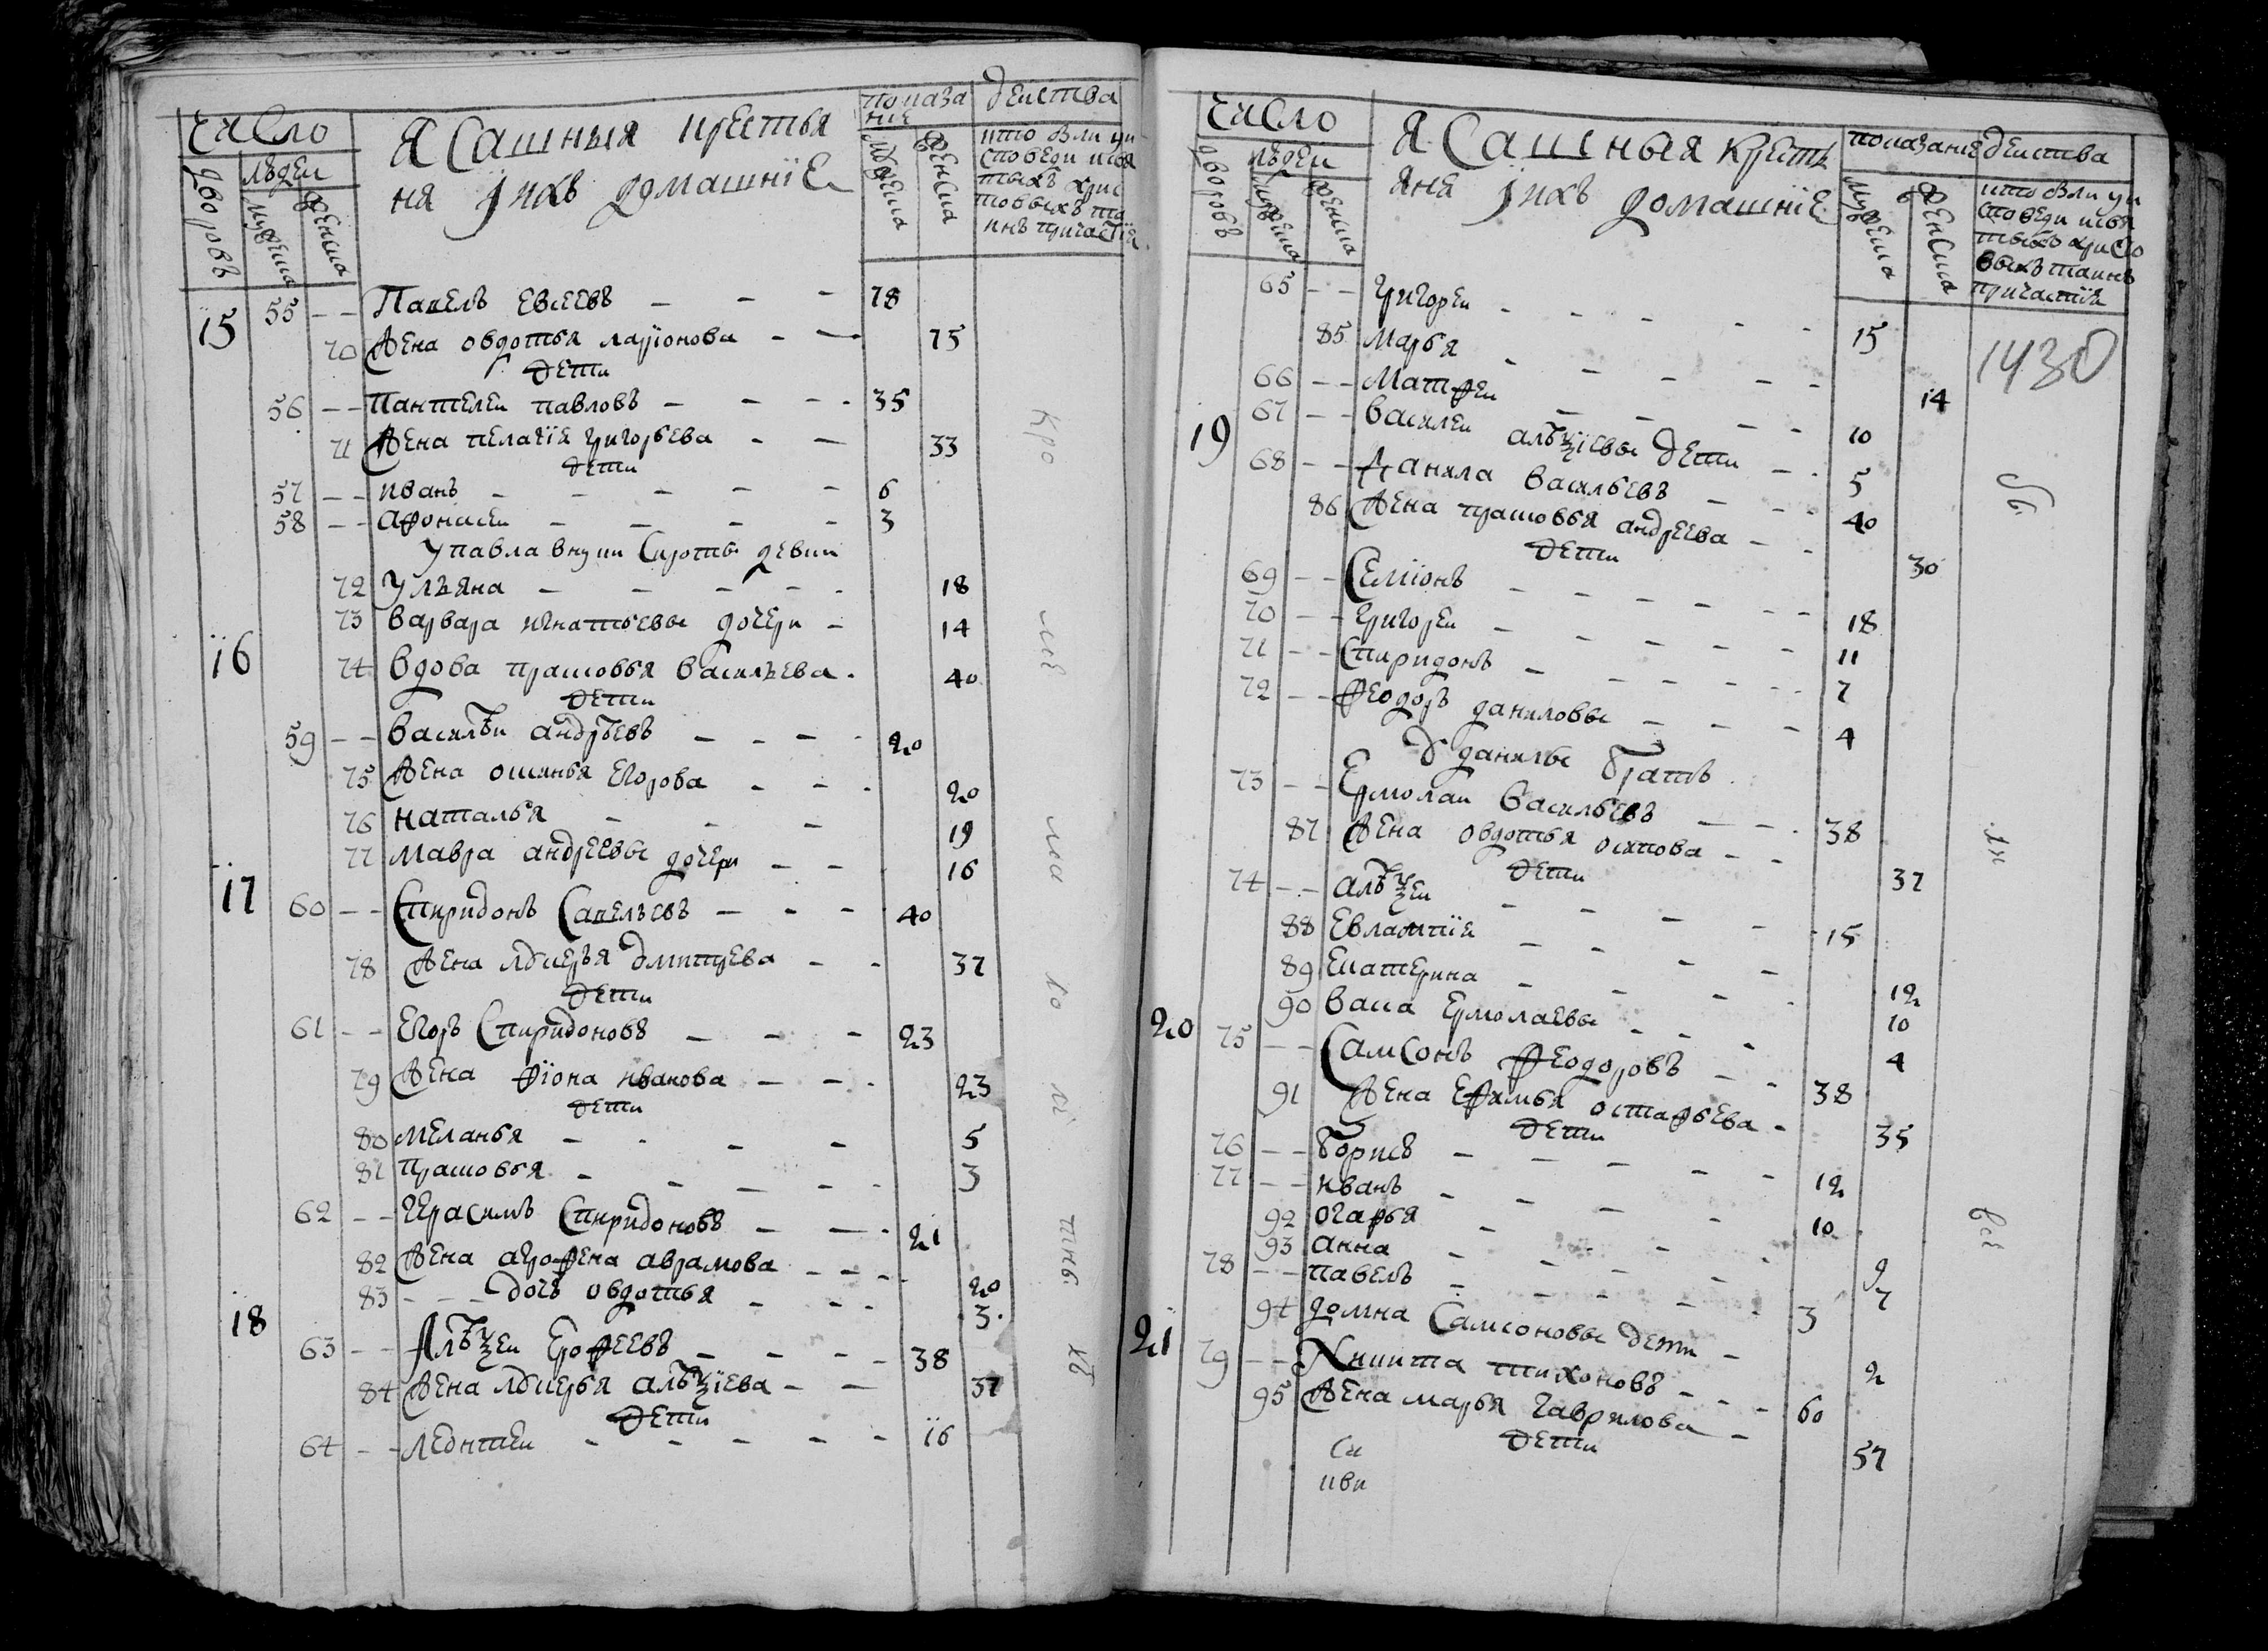 число
Ясашныя крестья
ня ихъ домашние
показа
ние
действа
дворовъ
людеи
мужеска
женска
мужеска
женска
кто были у и
споведи и свя
тыхъ хрис
товыхъ та
инъ причастия
15 55 -- Павелъ Евсеевъ - - - 78
70 Жена овдотья ларионова - - 75
дети
56 -- пантелеи павловъ - - - - 35
71 Жена пелагия григорьева - - 33
дети
57 -- иванъ - - - - - 6
58 -- афонасеи - - - - 3
у павла внуки сироты девки
72 ульяна - - - - - 18
73 варвара игнатьевы дочери - 14
16 74 вдова прасковья васильева - 40
дети
59 -- василѣи андрѣевъ - - - - 20
75 Жена оксинья егорова - - - 20
76 наталья - - - 19
77 мавра андреевы дочери - - 16
17 60 -- Спиридонъ Савельевъ - - - 40
78 Жена лукерья дмитрева - - 37
дети
61 -- Егоръ Спиридоновъ - - - 23
79 Жена фиона иванова - - - 23
дети
80 меланья - - - - 5
81 прасковья - - - - - 3
62 -- Герасимъ Спиридоновъ - - - 21
82 Жена агрофена аврамова - - - - 20
83 --- дочь овдотья - - - 3.
18 63 -- Алѣѯеи Ерофеевъ - - - - 38
84 Жена лукерья алѣѯиева - - 37
дети
64 -- леонтеи - - - - - 16
число
Ясашныя кресть
яня ихъ домашние
показание
действа
дворовъ
людеи
мужеска
женска
мужеска
женска
кто были у и
споведи и свя
тыхъ христо
выхъ таинъ
причастия
1430
65 -- григореи - - - - - 15
85 марья - - - - - - 14
66 -- матфеи - - - - - 10
67 -- василеи алѣѯиевы дети - - 5
19 68 -- Данила васильевъ - - - 40
86 Жена прасковья андреева - - 30
дети
69 -- Семионъ - - - - - - - 18
70 -- григореи - - - - - 11
71 -- Спиридонъ - - - - - - 7
72 -- феодоръ даниловы - - - - 4
у данилы братъ
73 -- Ермолаи васильевъ - - - 38
87 Жена овдотья осипова - - 37
дети
74 -- алѣѯеи - - - - - 15
88 Евлампия - - - - 12
89 Екатерина - - - - 10
90 васа ермолаевы - - - 4
20 75 -- Самсонъ феодоровъ - - 38
91 Жена ефимья остафьева - 35
дети
76 -- борисъ - - - - - - 12
77 -- иванъ - - - - 10
92 огафья - - - - 9
93 анна - - - - 7
78 -- павелъ - - - - - - 3
94 домна Самсоновы дети - 2
21 79 -- Никита тихоновъ - - - - 60
95 Жена марья гаврилова - 57
дети